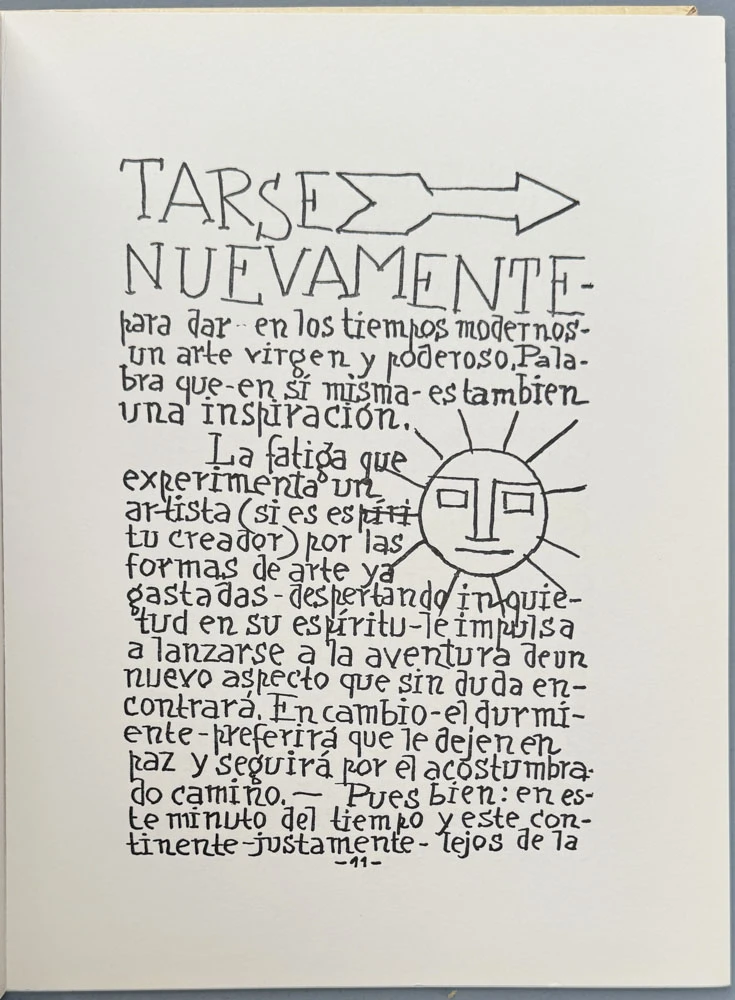 TARSE
NUEVAMENTE-
para dar - en los tiempos modernos-
un arte virgen y poderoso. Pala-
bra que-en sí misma-es tambien
una inspiración.
La fatiga que
experimenta un
artista (si es espíri-
tu creador) por las
formas de arte ya
gastadas-despertando inquie-
tud en su espíritu-le impulsa
a lanzarse a la aventura de un
nuevo aspecto que sin duda en-
contrará. En cambio-el durmi-
ente-preferirá que le dejen en
paz y seguirá por el acostumbra-
do camino.— Pues bien: en es-
te minuto del tiempo y este con-
tinente-justamente-lejos de la
-11-